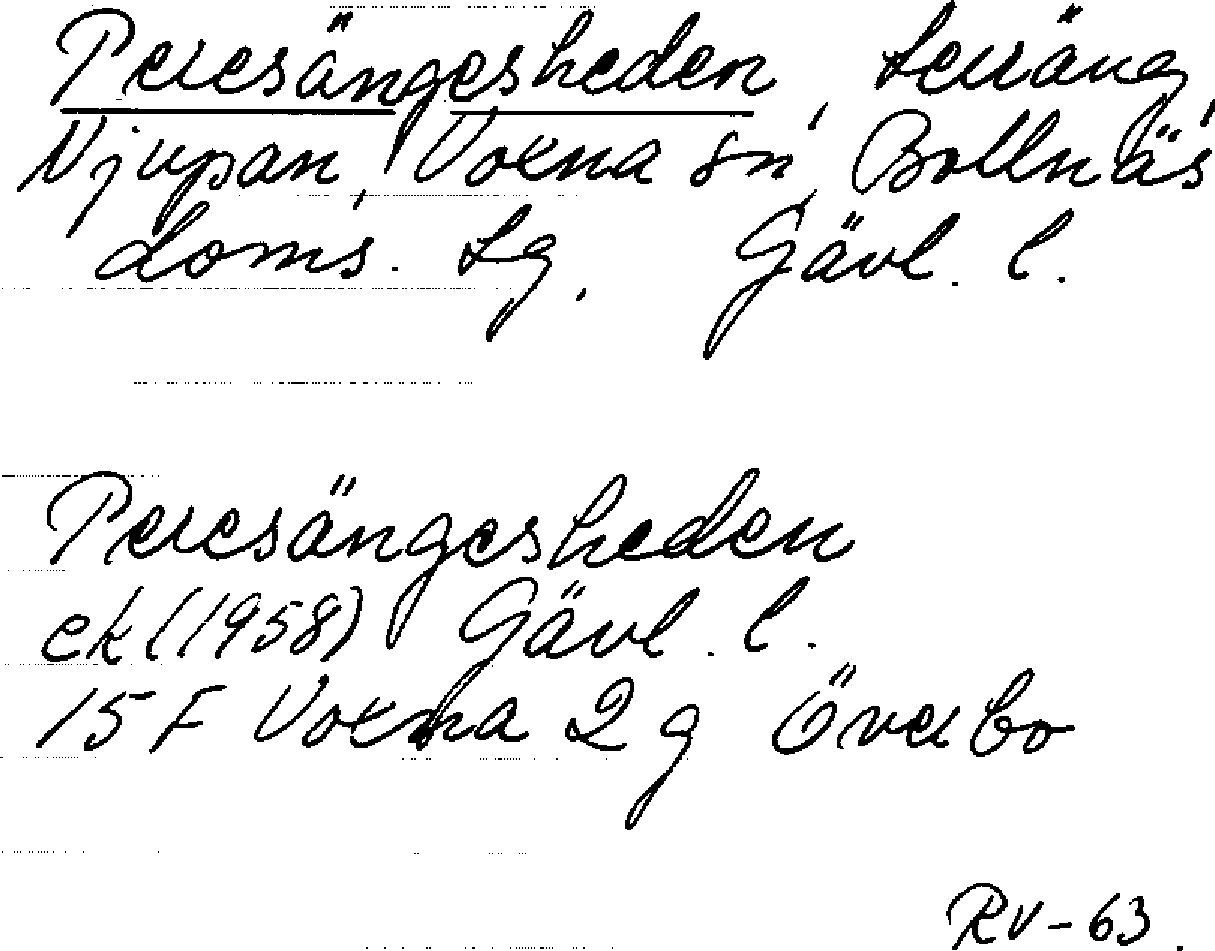 Persängesheden, terräng,
Njupan, Voxna sn, Bollnäs
doms. tg. Gävl. l.
Persängesheden
ek (1958) Gävl. l.
15 F Voxna 2 g Överbo
RV-63.